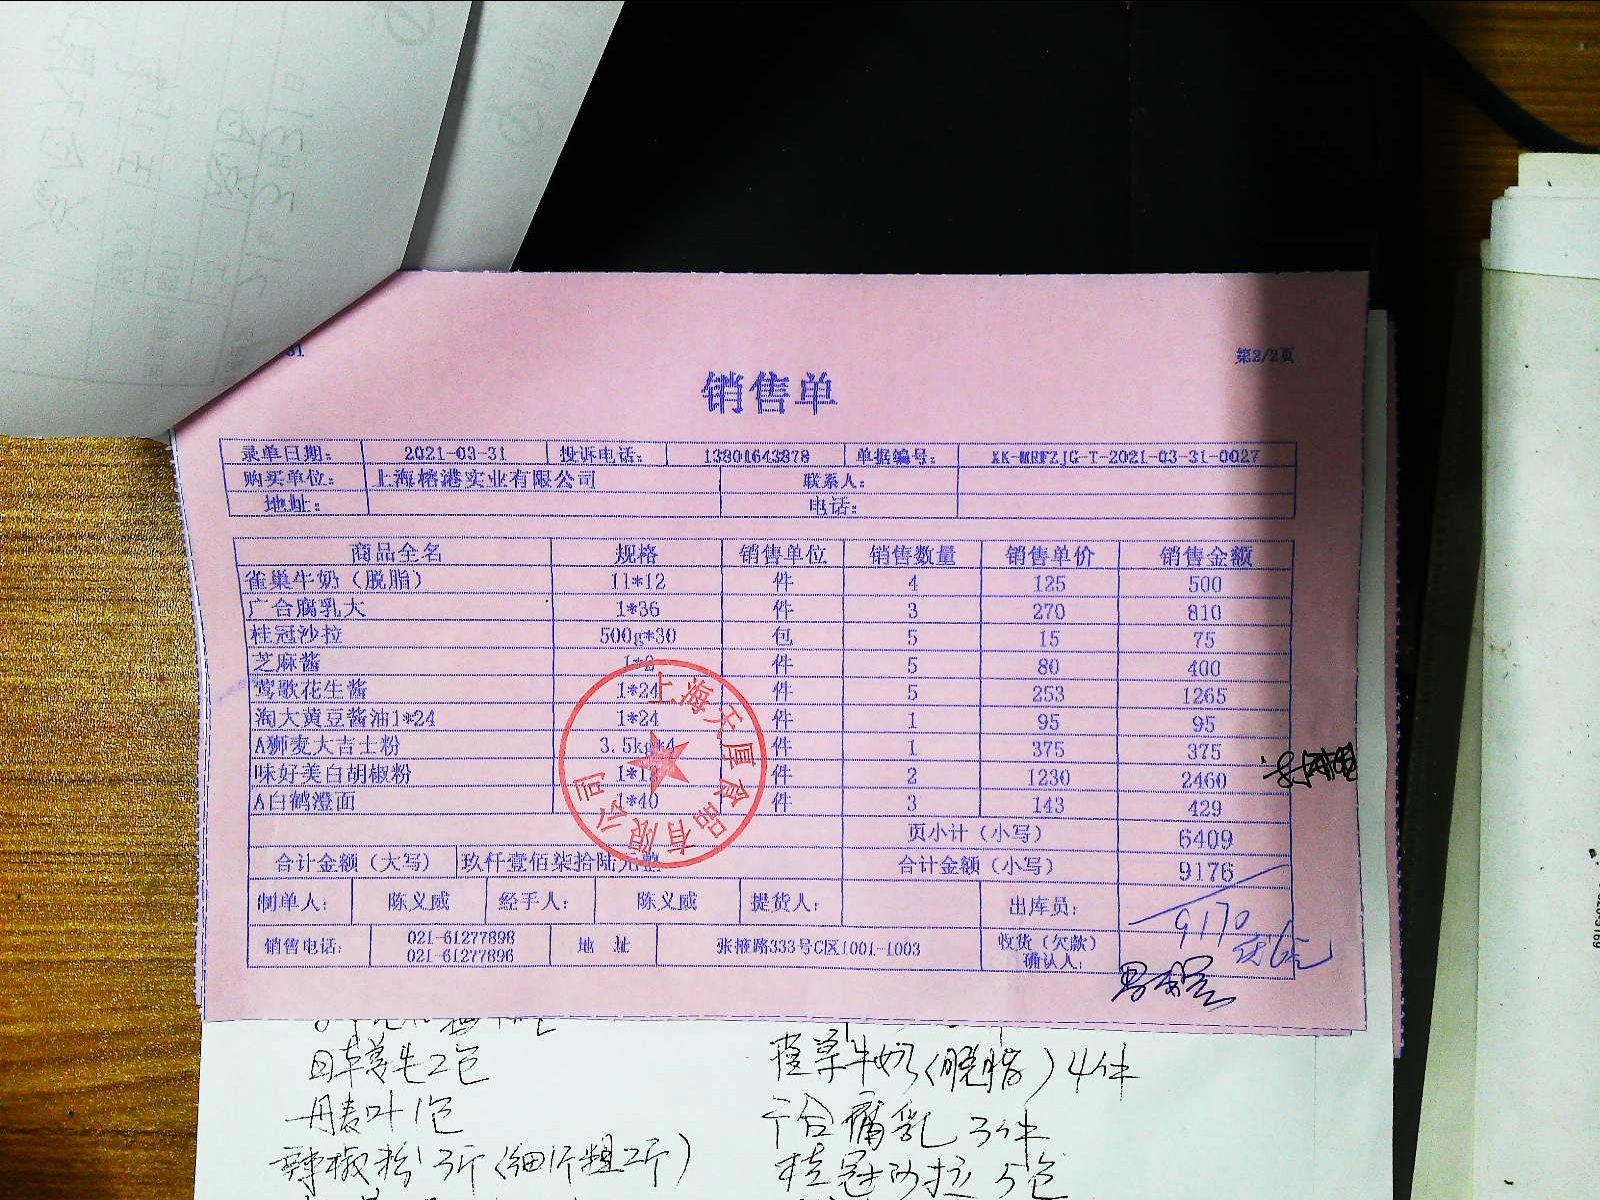 31
第2/2页
销售单
录单日期: 2021-03-31 投诉电话: 13801643878 单据编号: XK-MRFZJG-T-2021-03-31-0027
购买单位: 上海榕港实业有限公司 联系人:
地址: 电话:
商品全名 规格 销售单位 销售数量 销售单价 销售金额
雀巢牛奶（脱脂） 1l*12 件 4 125 500
广合腐乳大 1*36 件 3 270 810
桂冠沙拉 500g*30 包 5 15 75
芝麻酱 1*2 件 5 80 400
莺歌花生酱 1*24 件 5 253 1265
淘大黄豆酱油1*24 1*24 件 1 95 95
A狮麦大吉士粉 3.5kg*4 件 1 375 375
味好美白胡椒粉 件 2 1230 2460
A白鹤澄面 1*40 件 3 143 429
页小计（小写） 6409
合计金额（大写） 玖仟壹佰柒拾陆元整 合计金额（小写） 9176
制单人: 陈义威 经手人: 陈义威 提货人: 出库员:
9170
销售电话: 021-61277898 021-61277896 地 址 张掖路333号C区1001-1003 收货（欠款）确认人:
上海天厚食品有限公司
回草萼毛2包
丹麦叶1包
辣椒粉3斤(细1斤粗2斤)
雀巢牛奶(脱脂)4件
广合腐乳3件
桂冠沙拉5包